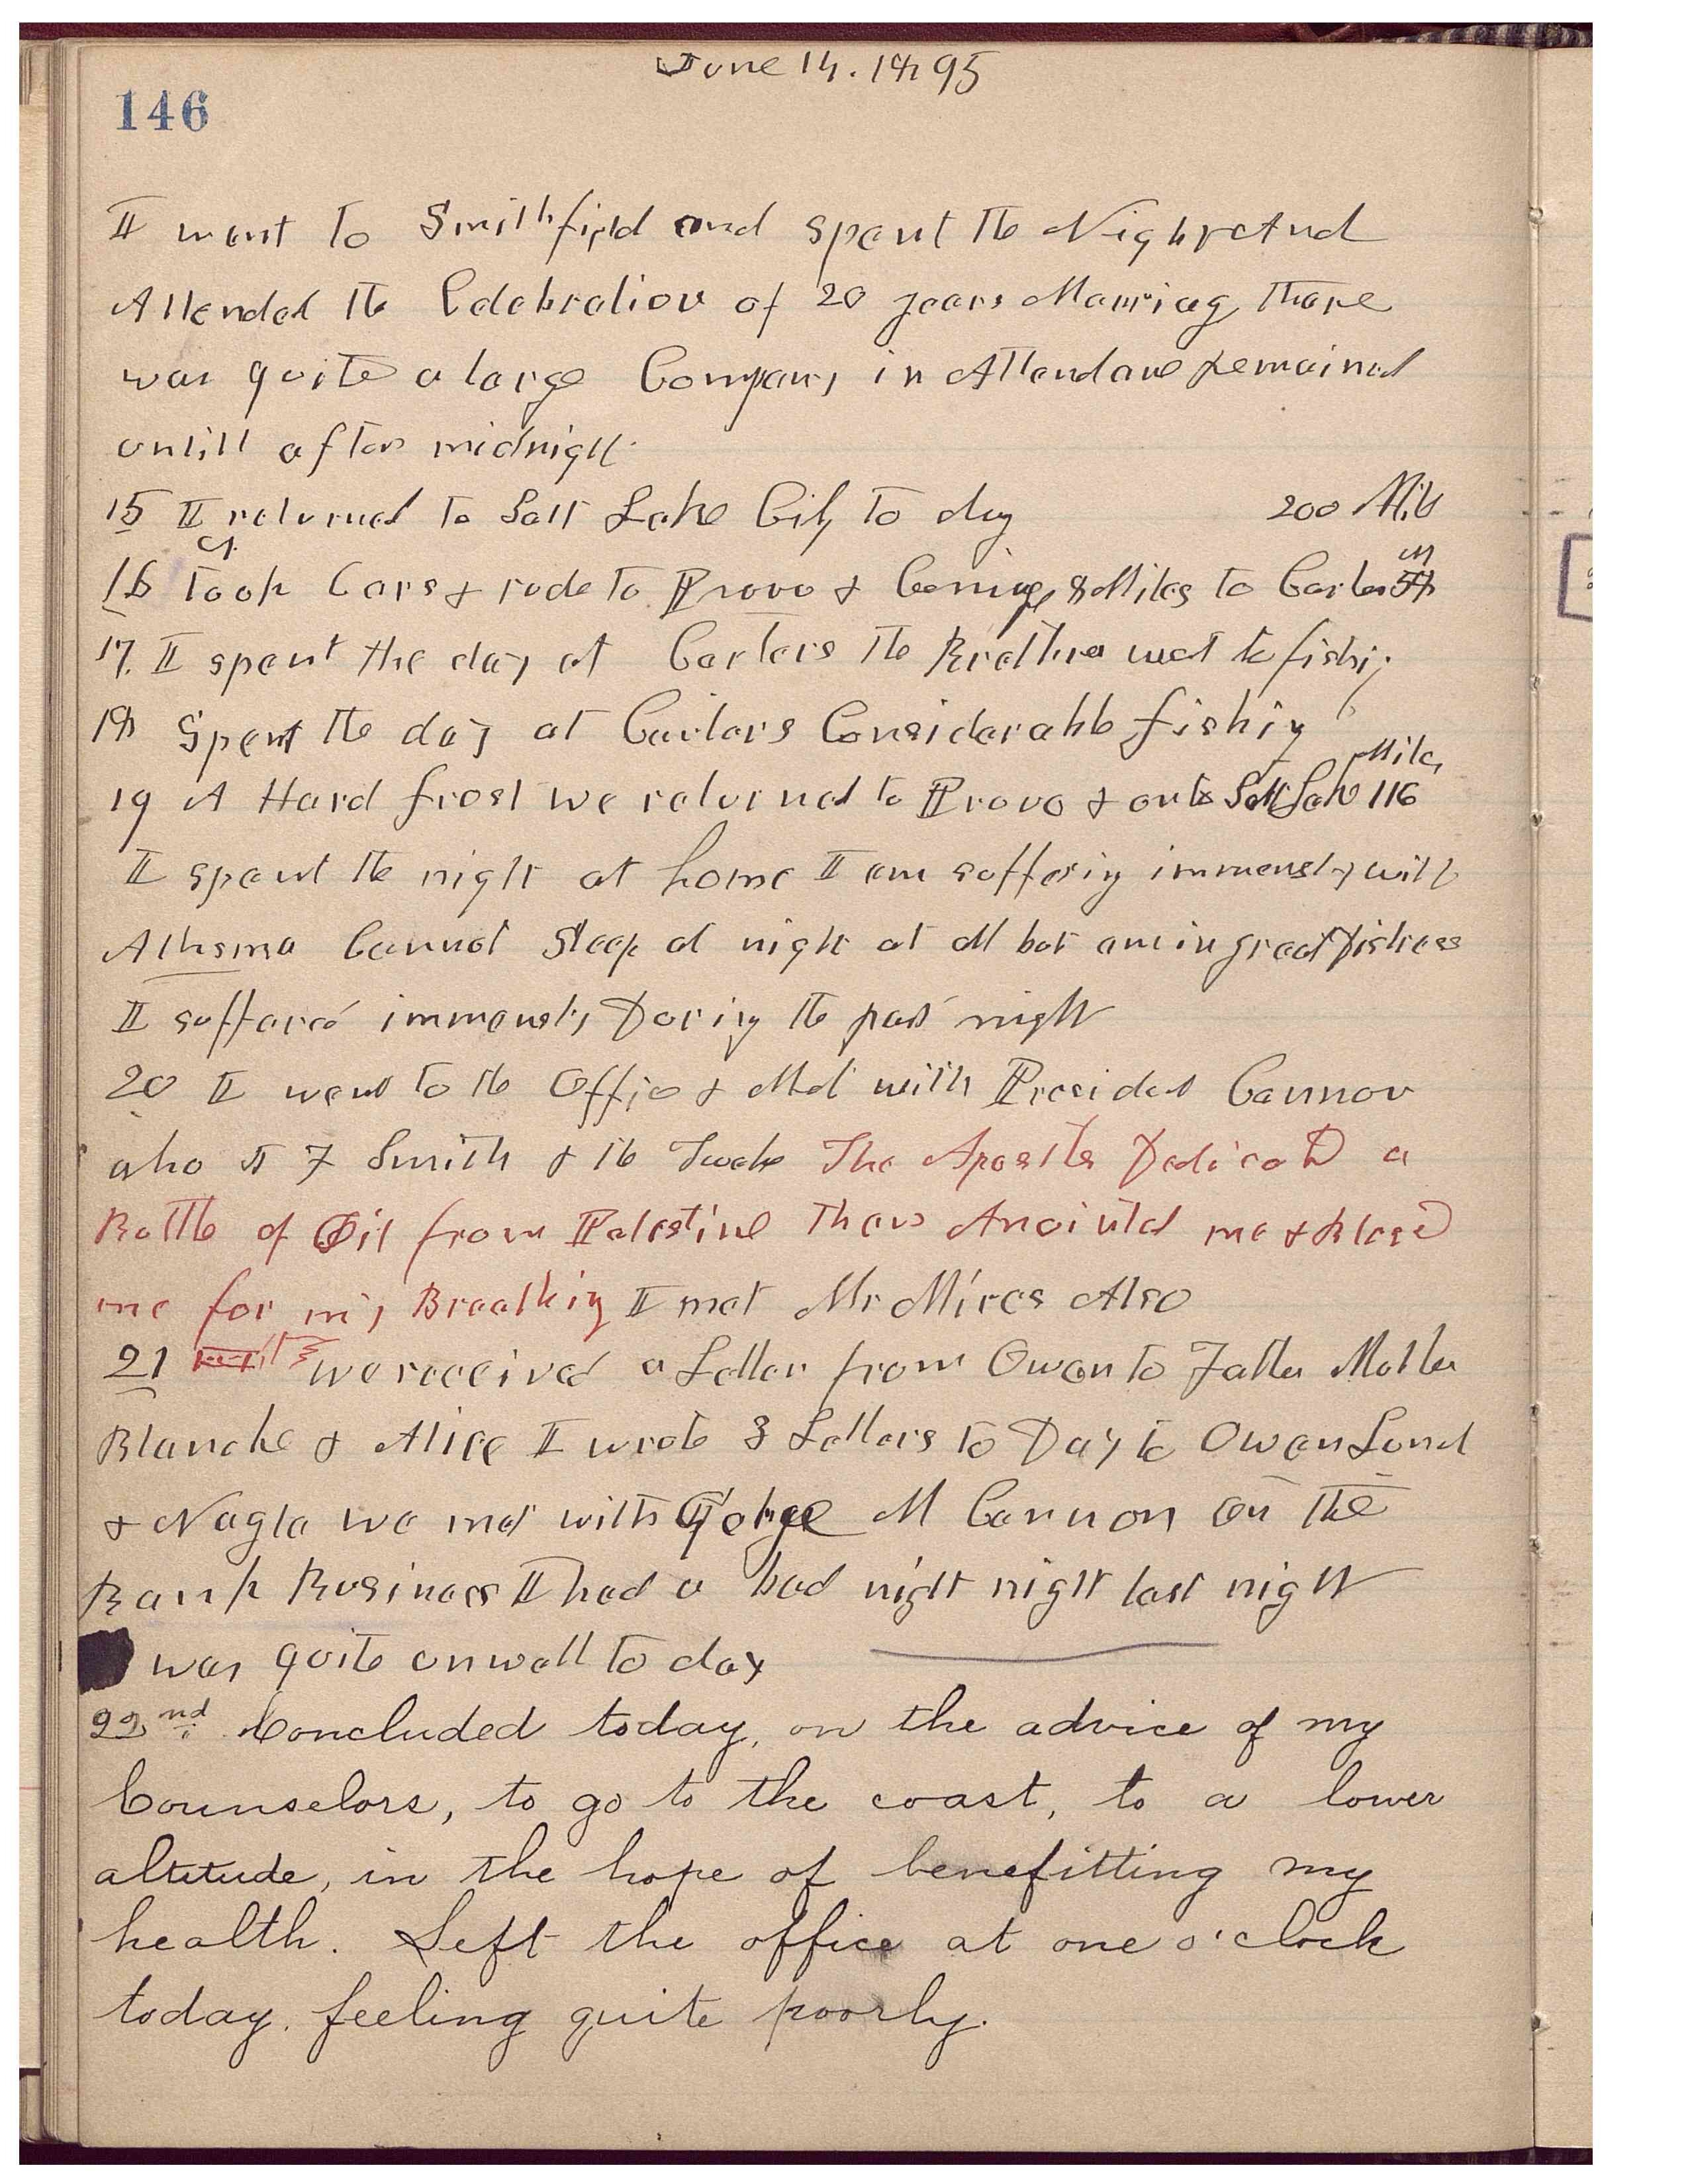 June 14. 1895
146
I went to Smithfield and spent the Night And
Attended the Celebration of 20 years Marriag, there
was quite a large Company in Attendance & remained
untill after midnight.
15 I returned to Salt Lake City to day 200 Mils
16 Took Cars & rode to Provo & Carriage 8 Miles to Carters
17. I spent the day at Carters the Brethren went to fishing
18 Spent the day at Carters Considerable fishing
19 A Hard frost we returned to Provo & on to Salt Lake 116 Miles
I spent the night at home I am suffering immensely with
Athsma Cannot Sleep at night at all but am in great Distress
I suffered immensely During the past night
20 I went to the Office & Met with President Cannon
also J F Smith & the Twelve The Apostles Dedicated a
Bottle of Oil from Palestine Then Anointed me & blessed
me for my Breathing I met Mr Mires Also
21 we received a Letter from Owen to Father Mother
Blanche & Alice I wrote 3 Letters to Day to Owen Lund
& Nagle we met with George M Cannon on the
Bank Business I had a bad night night last night
was quite unwell to day
22nd Concluded today, on the advice of my
Counselors, to go to the coast, to a lower
altitude, in the hope of benefitting my
health. Left the office at one o'clock
today. feeling quite poorly.